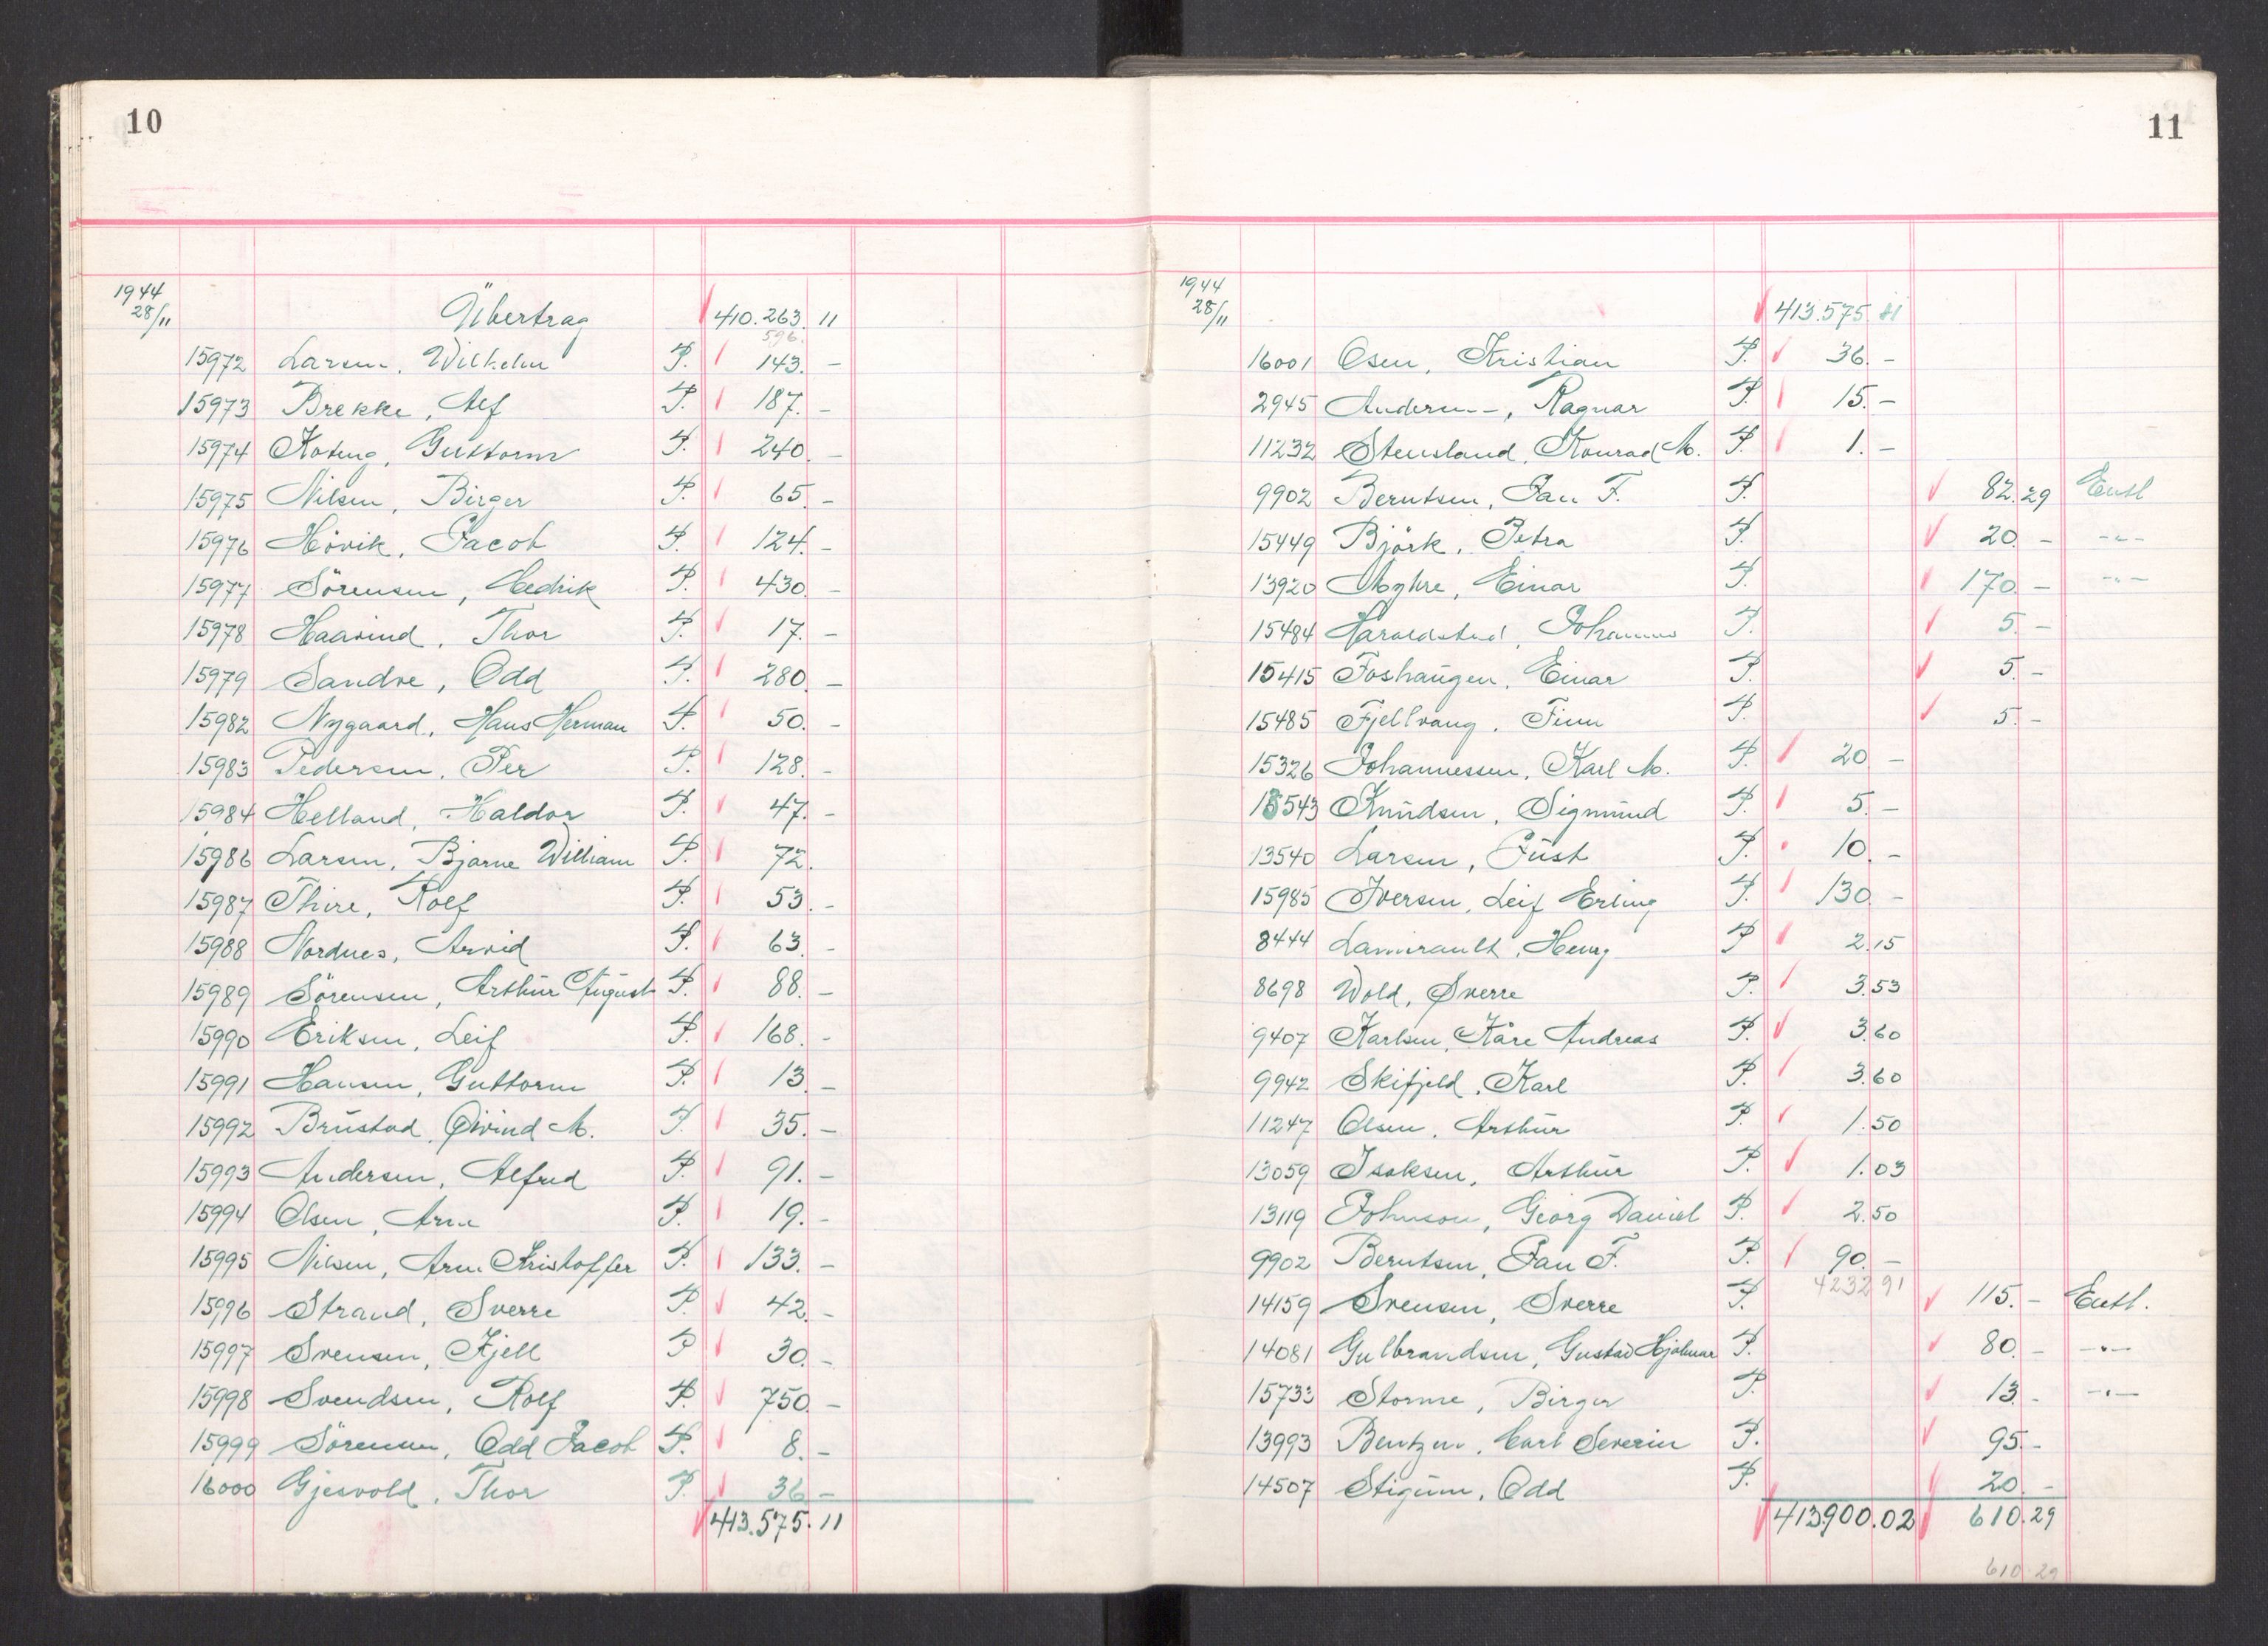 10
1944
28/11 Übertrag 410.263.11
596.
15972 Larsen, Wilhelm P. 143.-
15973 Brekke, Alf P. 187.-
15974 Koteng, Guttorm P. 240.-
15975 Nilsen, Birger P. 65.-
15976 Hövik, Jacob P. 124.-
15977 Sörensen, Hedrik P. 430.-
15978 Haavind, Thor P. 17.-
15979 Sandve, Odd P. 280.-
15982 Nygaard, Hans Herman P. 50.-
15983 Pedersen, Per P. 128.-
15984 Helland, Haldor P. 47.-
15986 Larsen, Bjarne William P. 72.
15987 Thire, Rolf P. 53.-
15988 Nordnes, Arvid P. 63.-
15989 Sörensen, Arthur August P. 88.-
15990 Eriksen, Leif P. 168.-
15991 Hansen, Guttorm P. 13.-
15992 Brustad, Öivind M. P. 35.-
15993 Andersen, Alfred P. 91.-
15994 Olsen, Arne P. 19.-
15995 Nilsen, Arne Kristoffer P. 133.-
15996 Strand, Sverre P. 42.-
15997 Svensen, Kjell P 30.-
15998 Svendsen, Rolf P. 750.-
15999 Sörensen, Odd Jacob P. 8.-
16000 Gjesvold, Thor P. 36.-
413.575.11
11
1944
28/11 413.575.11
16001 Osen, Kristian P. 36.-
2945 Andersen, Ragnar P. 15.-
11232 Stensland, Konrad M. P. 1.-
9902 Berntsen, Jan F. P. 82.29 Entl
15449 Björk, Petra P. 20.- -"-
13920 Myhre, Einar P. 170.- -"-
15484 Haroldstad, Johannes P. 5.-
15415 Foshaugen, Einar P. 5.-
15485 Fjellvang, Finn P. 5.-
15326 Johannessen, Karl M. P. 20.-
15543 Knudsen, Sigmund P. 5.-
13540 Larsen, Just P. 10.-
15985 Iversen, Leif Erling P. 130.-
8444 Lamirault, Henry P 2.15
8698 Wold, Sverre P. 3.53
9407 Karlsen, Kåre Andreas P. 3.60
9942 Skifjeld, Karl P. 3.60
11247 Olsen, Arthur P. 1.50
13059 Isaksen, Arthur P. 1.03
13119 Johnson, Georg Daniel P. 2.50
9902 Berntsen, Jan F. P. 90.-
4232 91
14159 Svensen, Sverre P. 115.- Entl.
14081 Gulbrandsen, Gustav Hjalmar P. 80.- -"-
15733 Storme, Birger P. 13.- -"-
13993 Bentzen, Carl Severin P. 95.-
14507 Stigum, Odd P. 20.-
413900.02 610.29
610.29